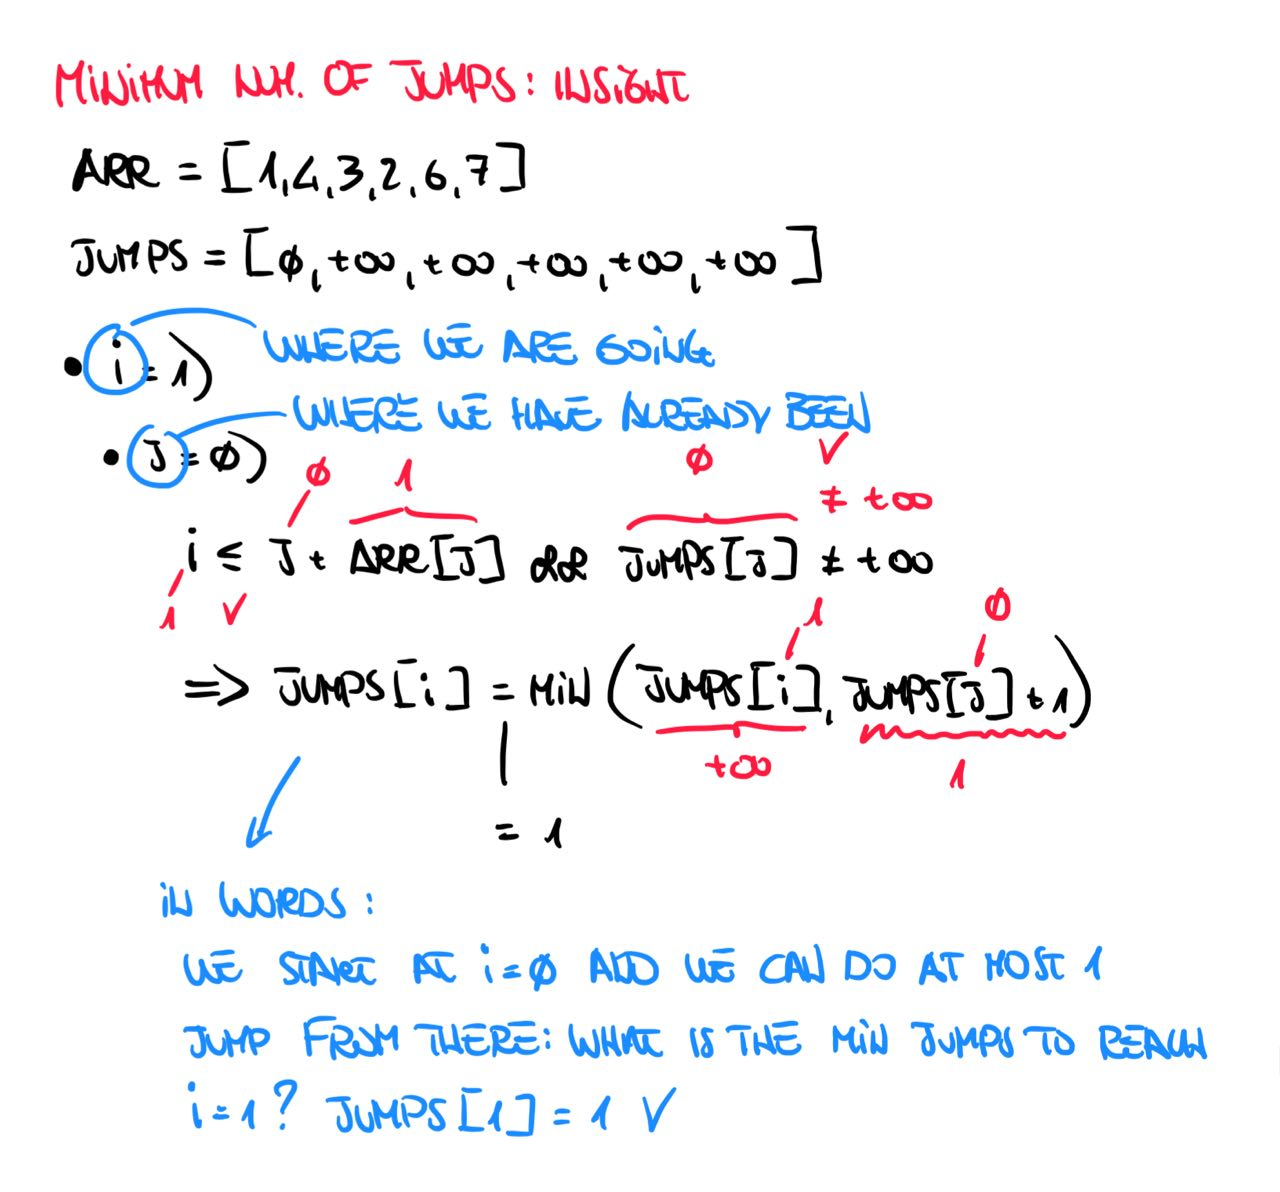 MINIMUM NUM. OF JUMPS: INSIGHT
ARR = [1,4,3,2,6,7]
JUMPS = [Ø,+∞,+∞,+∞,+∞,+∞]
• i = 1) WHERE WE ARE GOING
• J = Ø) WHERE WE HAVE ALREADY BEEN
Ø 1 Ø ✓
≠ +∞
i ≤ J + ARR[J] && JUMPS[J] ≠ +∞
1 ✓ 1 Ø
=> JUMPS[i] = MIN (JUMPS[i], JUMPS[J]+1)
+∞ 1
= 1
IN WORDS:
WE START AT i=Ø AND WE CAN DO AT MOST 1
JUMP FROM THERE: WHAT IS THE MIN JUMPS TO REACH
i=1? JUMPS[1] = 1 ✓